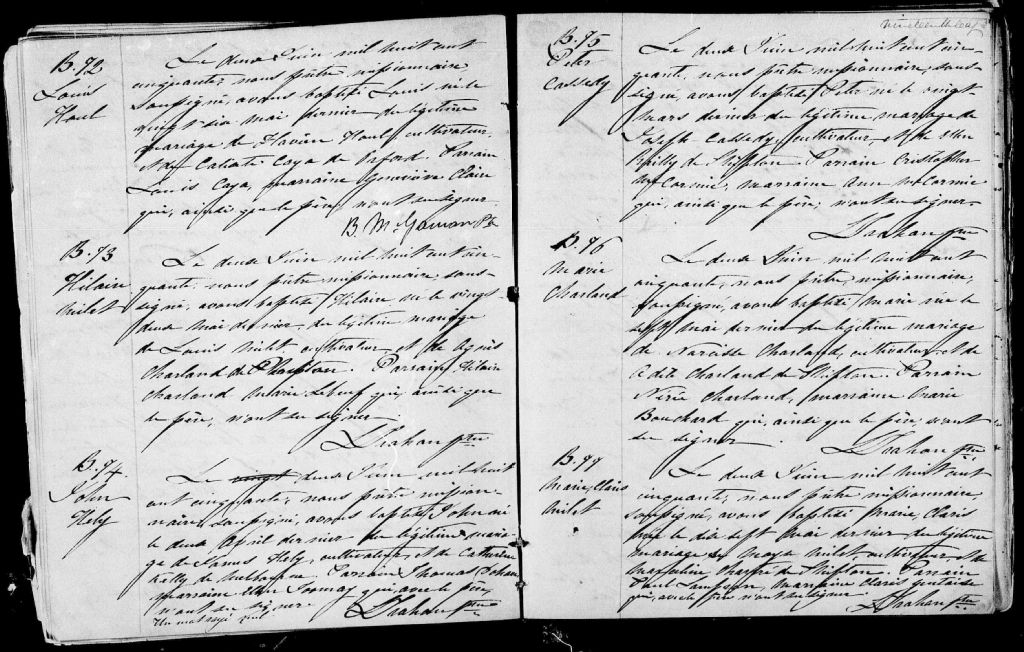 B.72
Louis
Houl
Le deux Juin mil huit cent
cinquante, nous prêtre missionnaire
soussigné, avons baptisé Louis né le
vingt six mai dernier du légitime
mariage de Flavien Houl, cultivateur,
et de Caya de Parrain
Louis Caya, marraine Geneviève Claire
qui, ainsi que le père, n'ont su signer.
B. McGauran Ptre
B.73
Hilaire
Milet
Le deux Juin mil huit cent cin-
quante, nous prêtre missionnaire, sous-
signé, avons baptisé Hilaire né le vingt-
deux mai dernier du légitime mariage
de Louis Milet cultivateur et de Agnès
Charland de Shipton. Parrain Hilaire
Charland Marie Lebeuf qui, ainsi que
le père, n'ont su signer.
LTrahan ptre
B.74
John
Hely
Le vingt deux Juin, mil huit
cent cinquante, nous prêtre mission-
naire, soussigné, avons baptisé John né
le deux April dernier du légitime maria-
ge de James Hely, cultivateur, et de Catherine
Kelly de Melbourne. Parrain Thomas
marraine qui, avec le père,
n'ont su signer. LTrahan ptre
Un mot rayé nul
nineteenth leaf
B.75
Peter
Cassedy
Le deux Juin mil huit cent cin-
quante, nous prêtre missionnaire, sous-
signé, avons baptisé Peter né le vingt
mars dernier du légitime mariage de
Joseph Cassedy, cultivateur, et de
Reilly de Shipton. Parrain Cristopher
McCormic, marraine Ann McCormic
qui, ainsi que le père, n'ont su signer.
LTrahan ptre
B.76
Marie
Charland
Le deux Juin mil huit cent
cinquante, nous prêtre, missionnaire,
soussigné, avons baptisé Marie née le
sept mai dernier du légitime mariage
de Narcisse Charland, cultivateur, et de
Adile Charland de Shipton. Parrain
Nérée Charland, marraine Marie
Bouchard qui, ainsi que le père, n'ont
su signer LTrahan ptre
B.77
Marie, Claris
Milet
Le deux Juin mil huit cent
cinquante, nous prêtre missionnaire,
soussigné, avons baptisé Marie, Claris
née le dix sept mai dernier du légitime
mariage de Moyse Milet cultivateur et de
de Shipton. Parrain
Paul marraine Claris
qui, avec le père n'ont su signer. LTrahan ptre